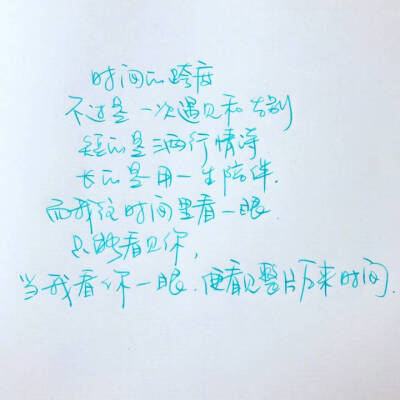 时间的跨度
不过是一次遇见和告别
短的是三两行情诗
长的是用一生陪伴.
而我往时间里看一眼
只能看见你,
当我看你一眼.便看见整片历来时间.